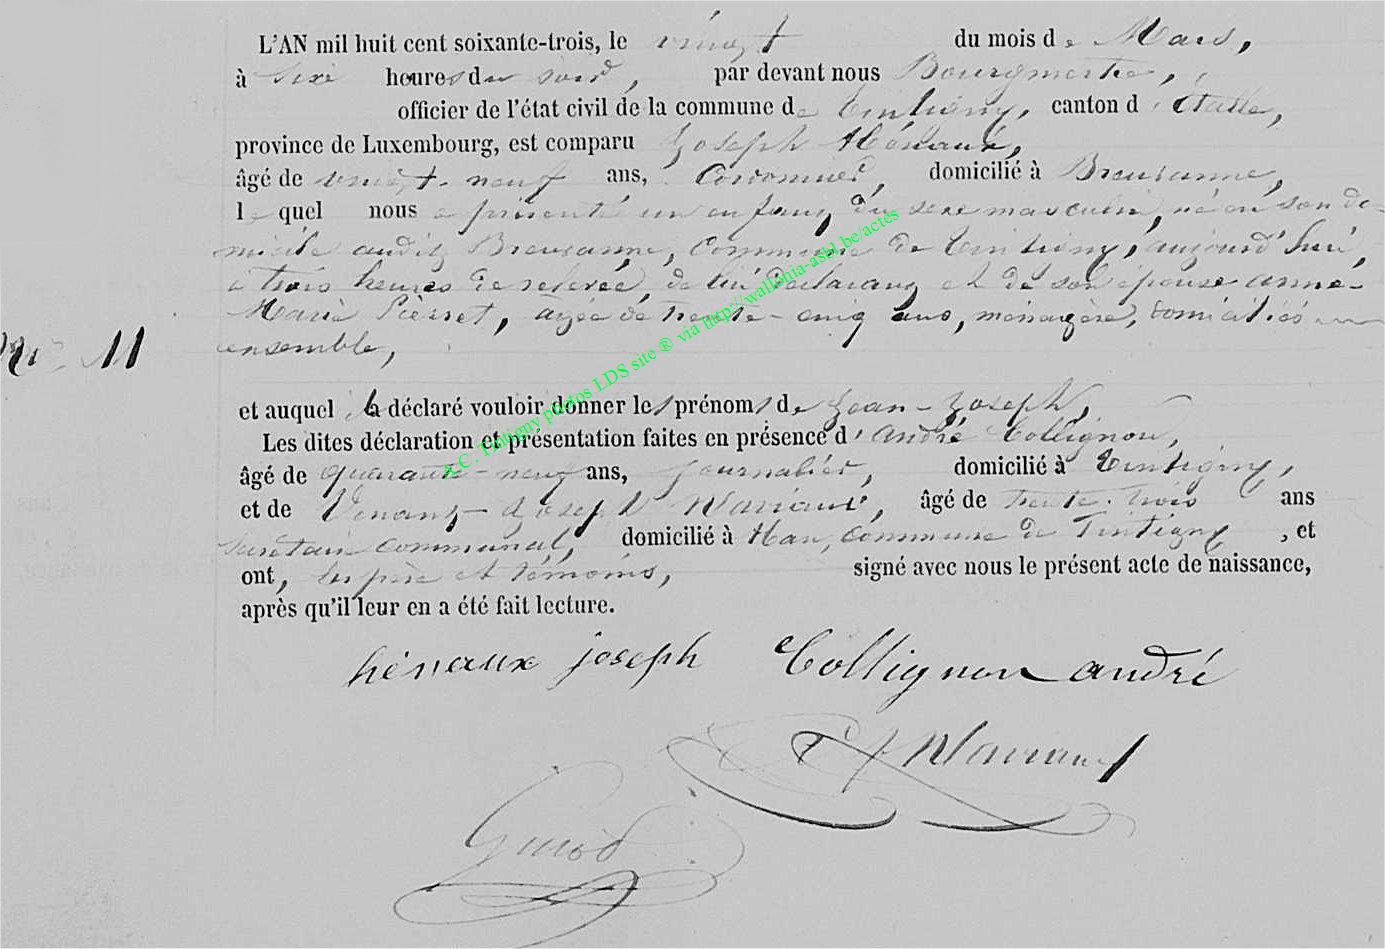 L'AN mil huit cent soixante-trois, le vingt du mois de Mars,
à six heures du soir, par devant nous Bourgmestre,
officier de l'état civil de la commune de Tintigny, canton d'Etalle,
province de Luxembourg, est comparu Joseph Hénaux,
âgé de vingt-neuf ans, Cordonnier, domicilié à Breuvanne,
lequel nous a présenté un enfant du sexe masculin, né en son do-
micile audit Breuvanne, Commune de Tintigny, aujourd'hui,
à trois heures de relevée, de lui déclarant et de son épouse Anne-
Marie Pierret, âgée de trente-cinq ans, ménagère, domiciliés
ensemble,
N° 11
et auquel il a déclaré vouloir donner les prénoms de Jean-Joseph,
Les dites déclaration et présentation faites en présence d'André Collignon,
âgé de quarante-neuf ans, journalier, domicilié à Tintigny,
et de Venant-Joseph Waviaux, âgé de trente-trois ans
Secrétaire communal, domicilié à Han, commune de Tintigny, et
ont, les père et témoins, signé avec nous le présent acte de naissance,
après qu'il leur en a été fait lecture.
hénaux joseph Collignon andré
A.C. Tintigny photos LDS site ® via http://wallonia-asbl.be/actes